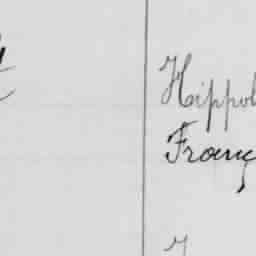 Hippol
Franç